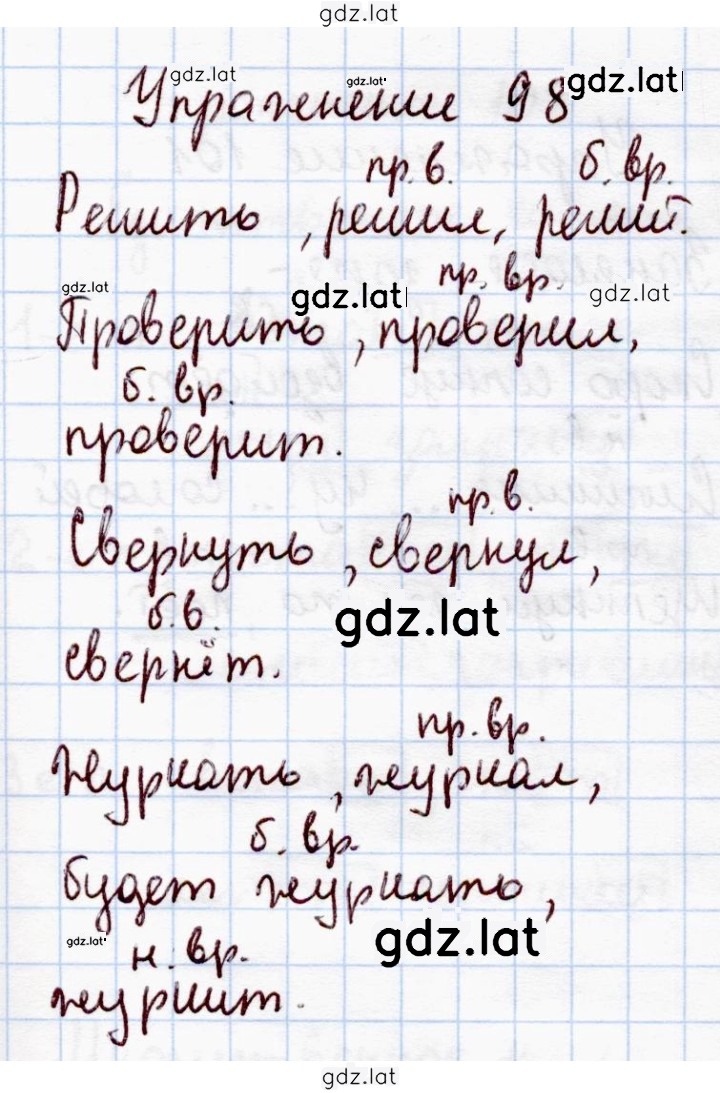 gdz.lat
gdz.lat gdz.lat gdz.lat
Упражнение 98
пр. в. б. вр.
Решить, решил, решит.
gdz.lat gdz.lat пр. вр. gdz.lat
Проверить, проверил,
б. вр.
проверит.
пр. в.
Свернуть, свернул,
б. в. gdz.lat
свернёт.
пр. вр.
Журчать, журчал,
б. вр.
будет журчать,
gdz.lat н. вр. gdz.lat
журчит.
gdz.lat